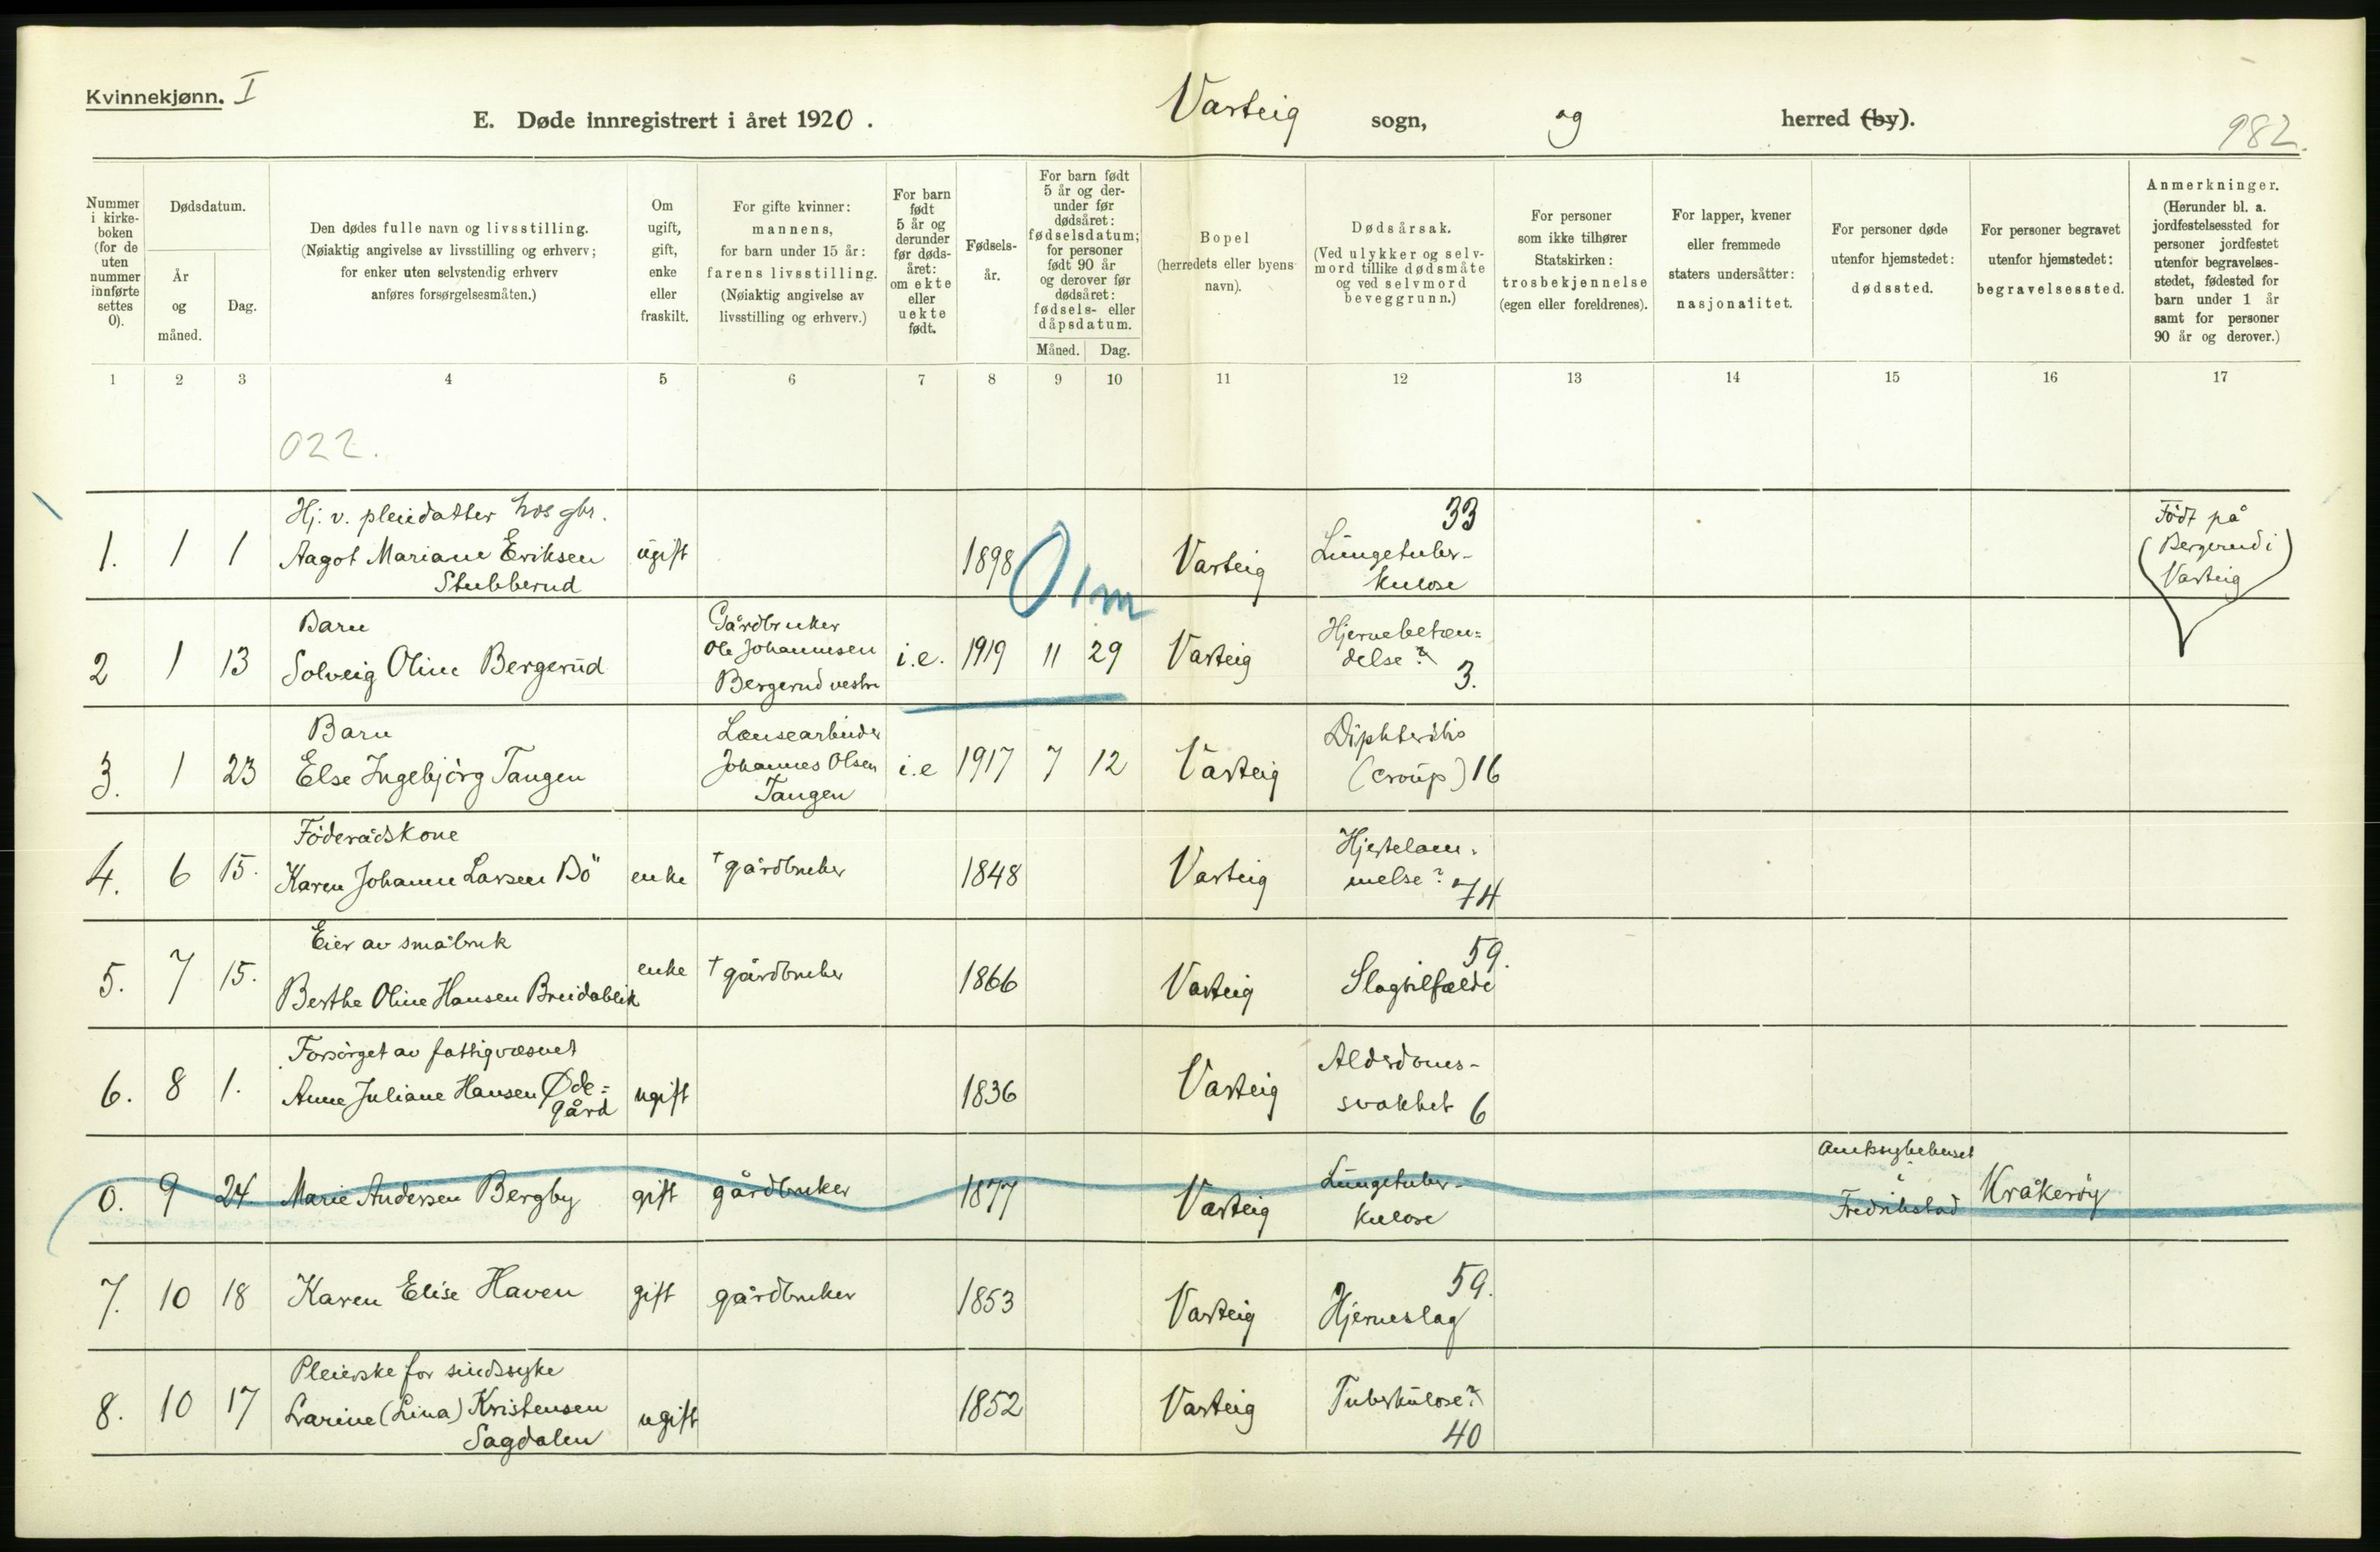 Kvinnekjønn. I
E. Døde innregistrert i året 1920.
Varteig sogn, og herred (by).
982.
Nummer
i kirke-
boken
(for de
uten
nummer
innførte
settes
0).
Dødsdatum.
År
og
måned.
Dag.
Den dødes fulle navn og livsstilling.
(Nøiaktig angivelse av livsstilling og erhverv;
for enker uten selvstendig erhverv
anføres forsørgelsesmåten.)
Om
ugift,
gift,
enke
eller
fraskilt.
For gifte kvinner:
mannens,
for barn under 15 år:
farens livsstilling.
(Nøiaktig angivelse av
livsstilling og erhverv.)
For barn
født
5 år og
derunder
før døds-
året:
om ekte
eller
uekte
født.
Fødsels-
år.
For barn født
5 år og der-
under før
dødsåret:
fødselsdatum;
for personer
født 90 år
og derover før
dødsåret:
fødsels- eller
dåpsdatum.
Måned. Dag.
Bopel
(herredets eller byens
navn).
Dødsårsak.
(Ved ulykker og selv-
mord tillike dødsmåte
og ved selvmord
beveggrunn.)
For personer
som ikke tilhører
Statskirken:
trosbekjennelse
(egen eller foreldrenes).
For lapper, kvener
eller fremmede
staters undersåtter:
nasjonalitet.
For personer døde
utenfor hjemstedet:
dødssted.
For personer begravet
utenfor hjemstedet:
begravelsessted.
Anmerkninger.
(Herunder bl. a.
jordfestelsessted for
personer jordfestet
utenfor begravelses-
stedet, fødested for
barn under 1 år
samt for personer
90 år og derover.)
1 2 3 4 5 6 7 8 9 10 11 12 13 14 15 16 17
022.
Hj. v. pleiedatter hos gbr. 33
1. 1 1 Aagot Mariane Eriksen ugift 1898 Varteig Lungetuber-
Stubberud kulose
Født på
(Bergerud i
Varteig)
0 1 m
Barn Gårdbruker Hjernebetæn=
2 1 13 Solveig Oline Bergerud Ole Johannesen i.e. 1919 11 29 Varteig delse?
Bergerud vestre 3.
Barn Lænsearbeider Diphteritis
3. 1 23 Else Ingebjörg Tangen Johannes Olsen i.e 1917 7 12 Varteig (croup) 16
Tangen
Föderådskone Hjertelam-
4. 6 15. Karen Johanne Larsen Bö enke † gårdbruker 1848 Varteig melse? 74
Eier av småbruk 59.
5. 7 15. Berthe Oline Hansen Breidablik enke † gårdbruker 1866 Varteig Slagtilfælde
Forsörget av fattigvæsnet Alderdoms-
6. 8 1. Anne Juliane Hansen Øde= ugift 1836 Varteig svakhet 6
gård
Amtssykehuset
0. 9 24 Marie Andersen Bergby gift gårdbruker 1877 Varteig Lungetuber- i Kråkeröy
kulose Fredrikstad
59.
7. 10 18 Karen Elise Haven gift gårdbruker 1853 Varteig Hjerneslag
Pleierske for sindssyke
8. 10 17 Larine (Lina) Kristensen ugift 1852 Varteig Tuberkulose?
Sagdalen 40